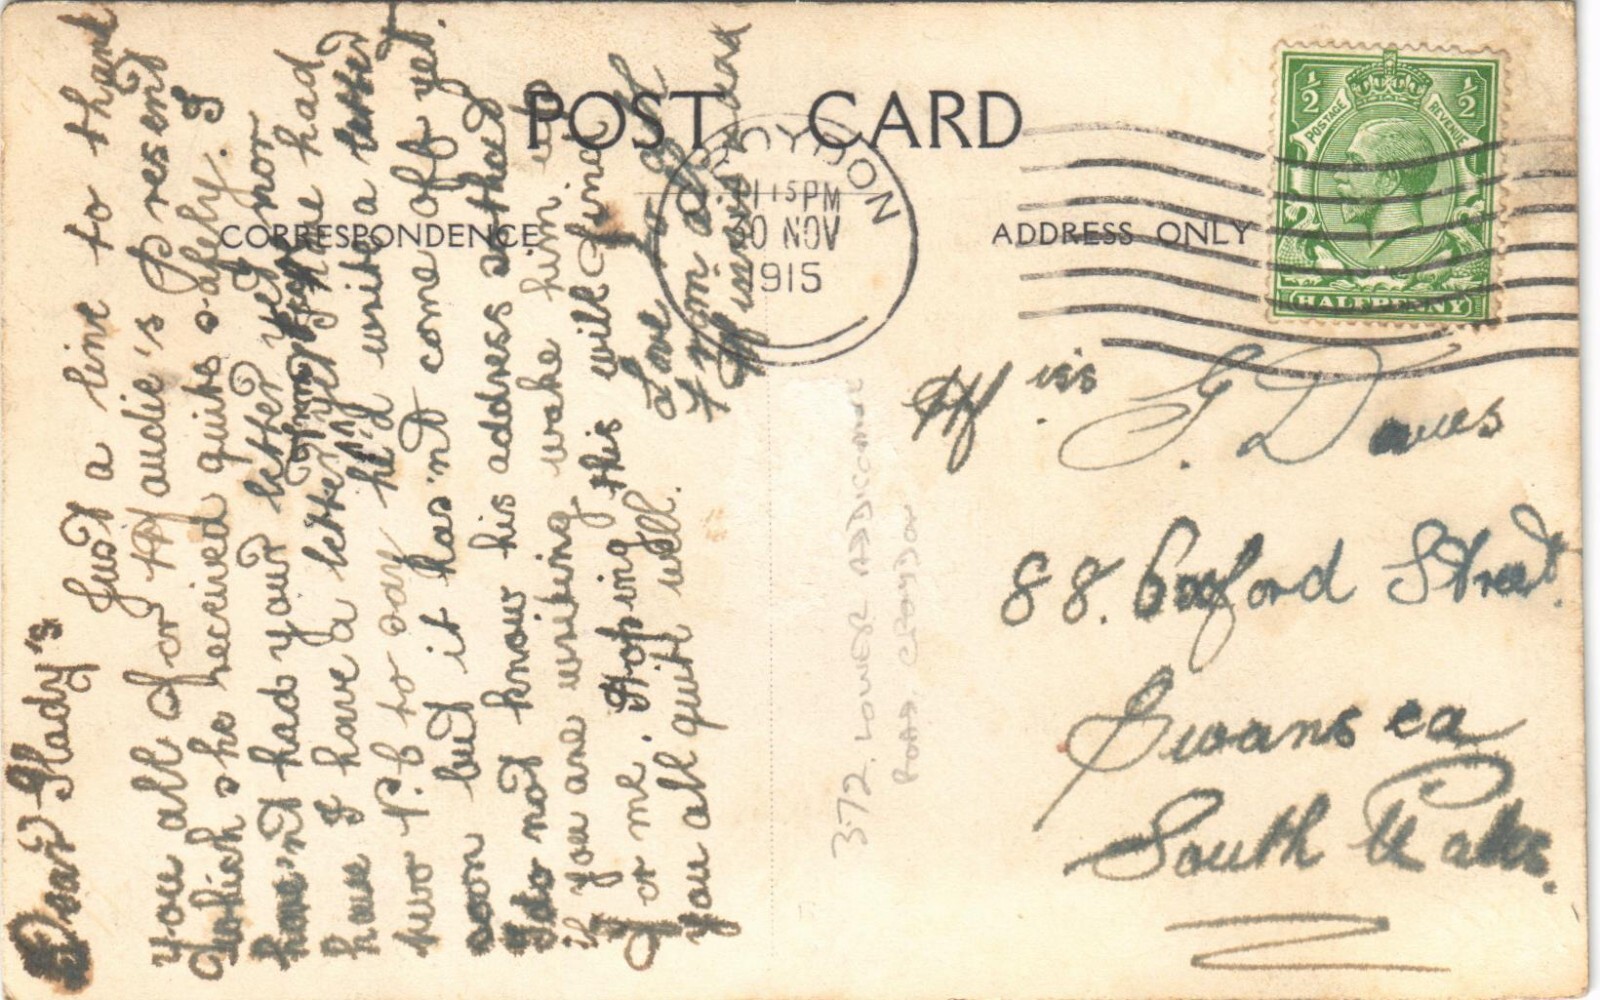 POST CARD
CORRESPONDENCE
ADDRESS ONLY
CROYDON
11 15 PM
30 NOV
1915
½ ½
POSTAGE REVENUE
HALFPENNY
Dear Glady's
Just a line to thank
you all for Maudie's Present
which she recieved quite safely. I
have'nt had your letter yet nor
have I have a letter yet have had
two P.C to say he'd write a letter
soon but it has'nt come off yet.
I do not know his address so that
if you are writing wake him up
for me. Hoping this will find
you all quite well.
Love to all
from all
Miss G. Davies
88. Oxford Street.
Swansea
South Wales.
372. LOWER ADDISCOMBE
ROAD, CROYDON